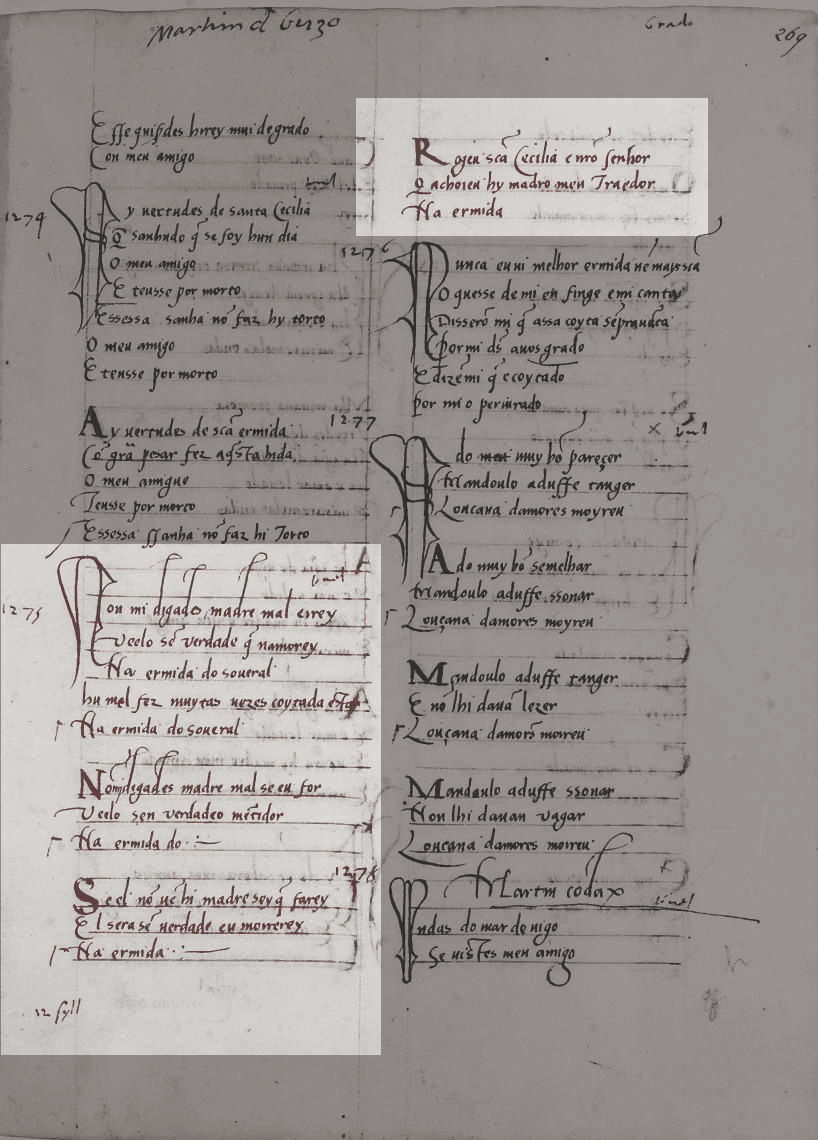 Martim d Gizo
Grado
269
Esse quisesdes hirey mui degrado
Con meu amigo
1274
Ay uertudes de santa Cecilia
Q̄ sanhudo q̄ se foy hun dia
O meu amigo
E teusse por morto
Essessa sanha nō faz hy torto
O meu amigo
E teusse por morto
Ay uertudes de scā ermida
Cō grā pesar fez aq̄sta hida
O meu amigue
Teusse por morto
Essessa ssanha nō faz hi Torto
1275
Non mi digades madre mal eirey
Veelo sē verdade q̄ namorey
Na ermida do soueral
hu mel fez muytas uezes coytada estar
Na ermida do soueral
Nōmidigades madre mal se eu for
Veelo sen verdadeo mētidor
Na ermida do
1278
Se el nō uē hi madre sey q̄ farey
El sera sē uerdade eu morrerey
Na ermida
12 syll
Rogeu scā Cecilia e nrō senhor
Q̄ achoieu hy madro meu Traedor
Na ermida
1276
Nunca eu ui melhor ermida nē mays scā
O quesse de mi en finge emi canta
Disserō mi q̄ assa coyta sēpravāta
Por mi ds̄ auos grado
E dizēmi q̄ e coytado
Por mi o periurado
1277
Ado muy bō pareçer
Mandoulo aduffe tanger
Louçana damores moyreu
Ado muy bō semelhar
Mandoulo aduffe ssonar
Louçana damores moyreu
Mandoulo aduffe tanger
E nō lhi dauā lezer
Louçana damors moireu
Mandaulo aduffe ssonar
Non lhi dauan vagar
Louçana damores moireu
Martin codax
Ondas do mar de uigo
Se uistes meu amigo